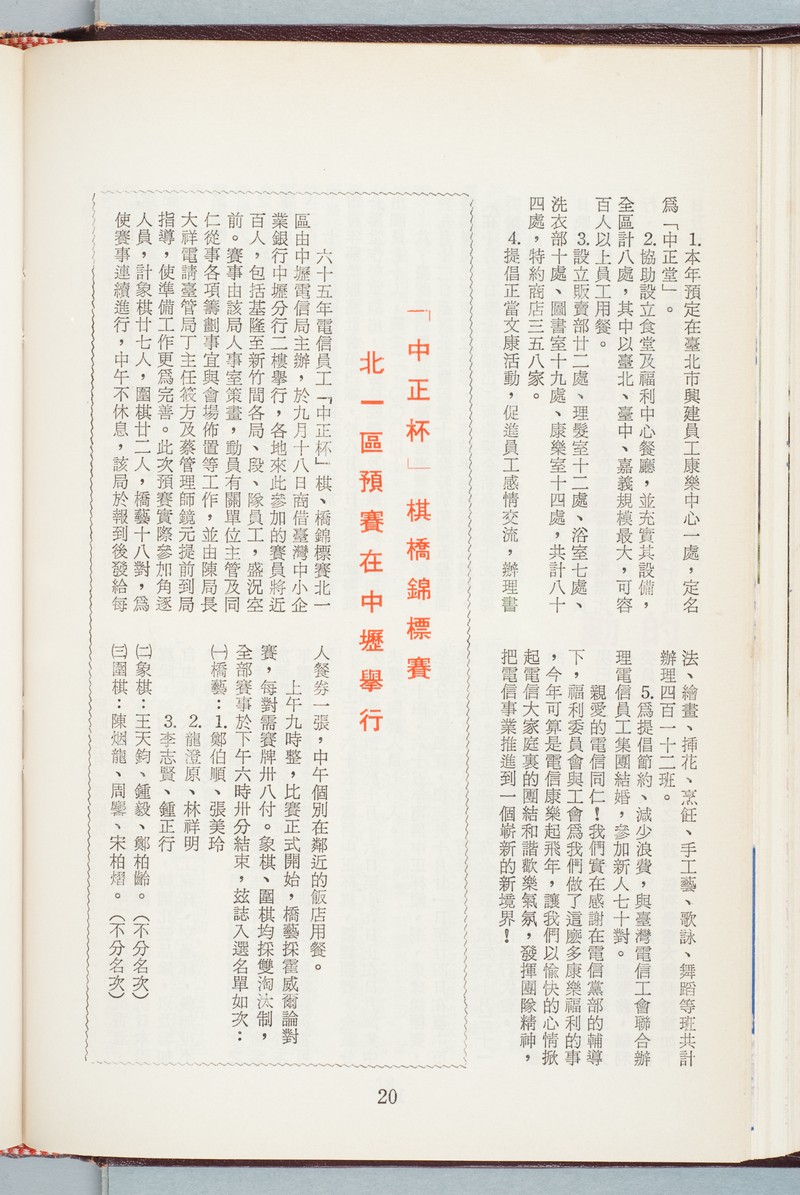 1.本年預定在臺北市興建員工康樂中心一處，定名
爲「中正堂」。
2.協助設立食堂及福利中心餐廳，並充實其設備，
全區計八處，其中以臺北、臺中、嘉義規模最大，可容
百人以上員工用餐。
3.設立販賣部廿二處、理髮室十二處、浴室七處、
洗衣部十處、圖書室十九處、康樂室十四處，共計八十
四處，特約商店三五八家。
4.提倡正當文康活動，促進員工感情交流，辦理書
法、繪畫、揷花、烹飪、手工藝、歌詠、舞蹈等班共計
辦理四百一十二班。
5.爲提倡節約、減少浪費，與臺灣電信工會聯合辦
理電信員工集團結婚，參加新人七十對。
親愛的電信同仁！我們實在感謝在電信黨部的輔導
下，福利委員會與工會爲我們做了這麽多康樂福利的事
，今年可算是電信康樂起飛年，讓我們以愉快的心情掀
起電信大家庭裏的團結和諧歡樂氣氛，發揮團隊精神，
把電信事業推進到一個嶄新的新境界！
「中正杯」棋橋錦標賽
北一區預賽在中壢舉行
六十五年電信員工「中正杯」棋、橋錦標賽北一
區由中壢電信局主辦，於九月十八日商借臺灣中小企
業銀行中壢分行二樓舉行，各地來此參加的賽員將近
百人，包括基隆至新竹間各局、段、隊員工，盛況空
前。賽事由該局人事室策畫，動員有關單位主管及同
仁從事各項籌劃事宜與會場佈置等工作，並由陳局長
大祥電請臺管局丁主任筱方及蔡管理師鏡元提前到局
指導，使準備工作更爲完善。此次預賽實際參加角逐
人員，計象棋廿七人，圍棋廿二人，橋藝十八對，爲
使賽事連續進行，中午不休息，該局於報到後發給每
人餐券一張，中午個別在鄰近的飯店用餐。
上午九時整，比賽正式開始，橋藝採霍威爾論對
賽，每對需賽牌卅八付。象棋、圍棋均採雙淘汰制，
全部賽事於下午六時卅分結束，玆誌入選名單如次：
㈠橋藝：1.鄭伯順、張美玲
2.龍澄原、林祥明
3.李志賢、鍾正行
㈡象棋：王天鈞、鍾毅、鄭柏齡。（不分名次）
㈢圍棋：陳烟龍、周馨、宋柏熠。（不分名次）
20